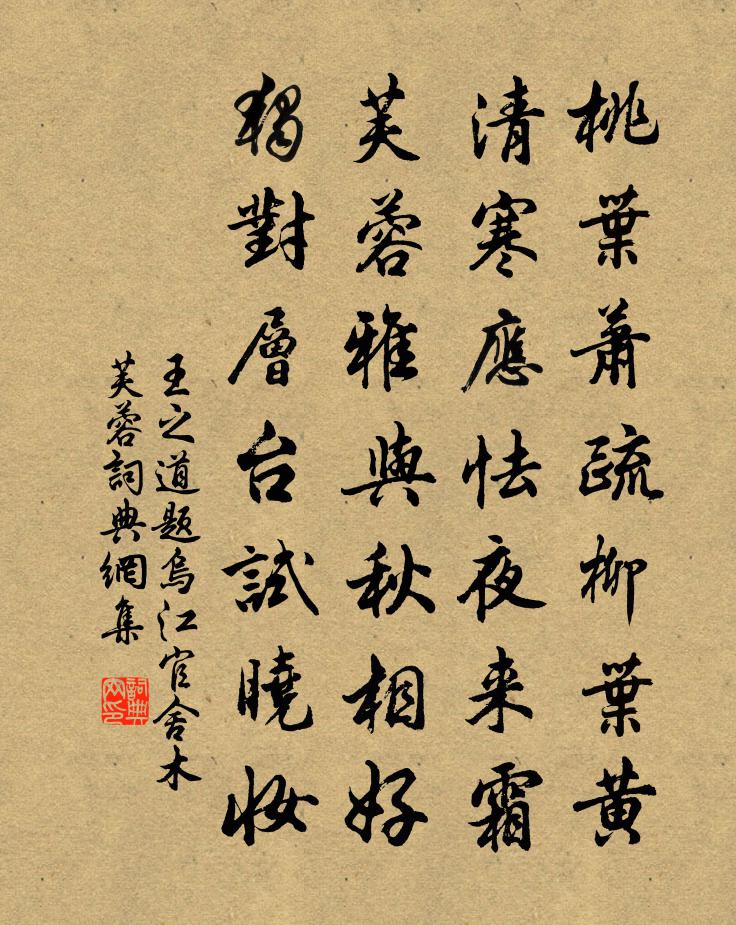 桃葉蕭疏柳葉黃
清寒應怯夜来霜
芙蓉雅與秋相好
獨對層台試曉妝
王之道題烏江官舍木
芙蓉詞典網集
詞典
网印